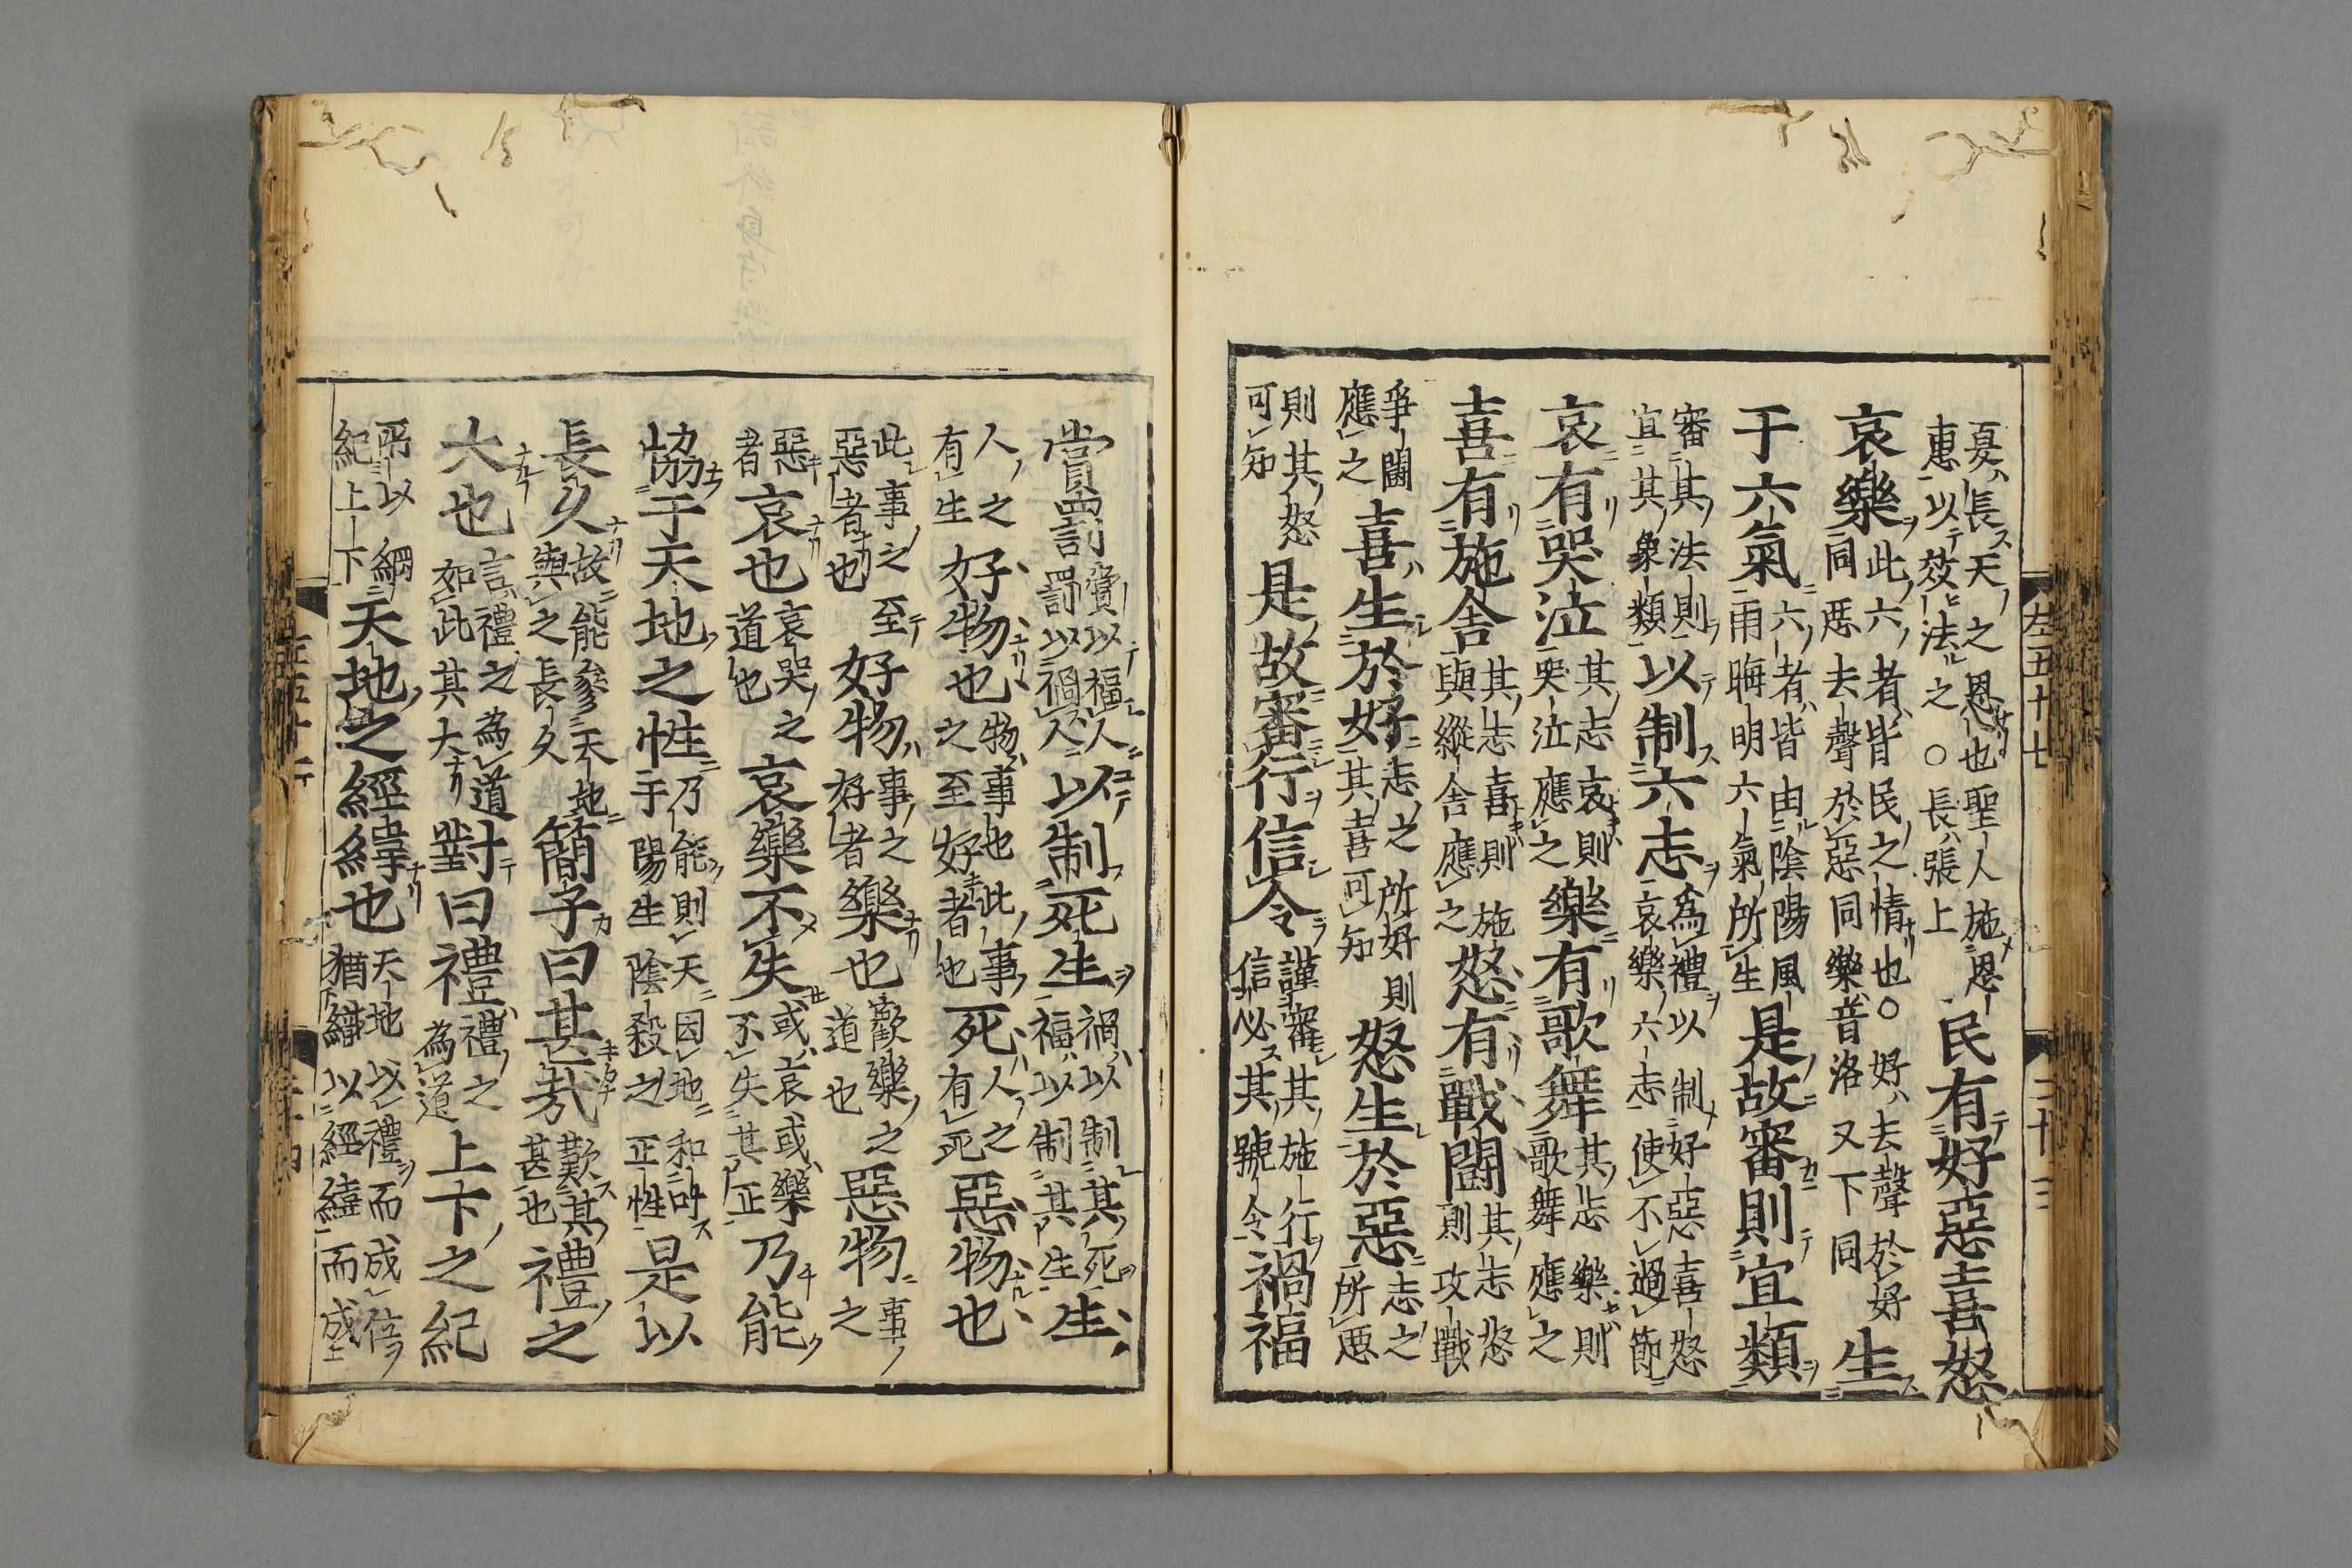 左五十七　二十三
夏長天之恩也聖人施恩
惠以效法之○長張上
民有好惡喜怒
哀樂
此六者皆民之情也○好去聲於好
同惡去聲於惡同樂音洛又下同
生
于六氣
六者皆由陰陽風
雨晦明六氣所生
是故審則宜類
審其法則
宜其象類
以制六志
為禮以制好惡喜怒
哀樂六志使不過節
哀有哭泣
其志哀則
哭泣應之
樂有歌舞
其志樂則
歌舞應之
喜有施舍
其志喜則施
與縱舍應之
怒有戰鬪
其志怒
則攻戰
爭鬪
應之
喜生於好
志之所好則
其喜可知
怒生於惡
志之
所惡
則其怒
可知
是故審行信令
謹審其施行
信必其號令
禍福
賞罰
賞以福人
罰以禍人
以制死生
禍以制其死
福以制其生
生
人之
有生
好物也
物事也此事
之至好者也
死
人之
有死
惡物也
此事之至
惡者也
好物
事之
好者
樂也
歡樂之
道也
惡物
事
之
惡
者
哀也
哀哭之
道也
哀樂不失
或哀或樂
不失其正
乃能
協于天地之性
乃能則天因地和叶
于陽生陰殺之正性
是以
長久
故能參天地
與之長久
簡子曰甚哉
歎其
甚也
禮之
大也
言禮之為道
如此其大
對曰禮
禮之
為道
上下之紀
所以綱
紀上下
天地之經緯也
天地以禮而成位
猶織以經緯而成